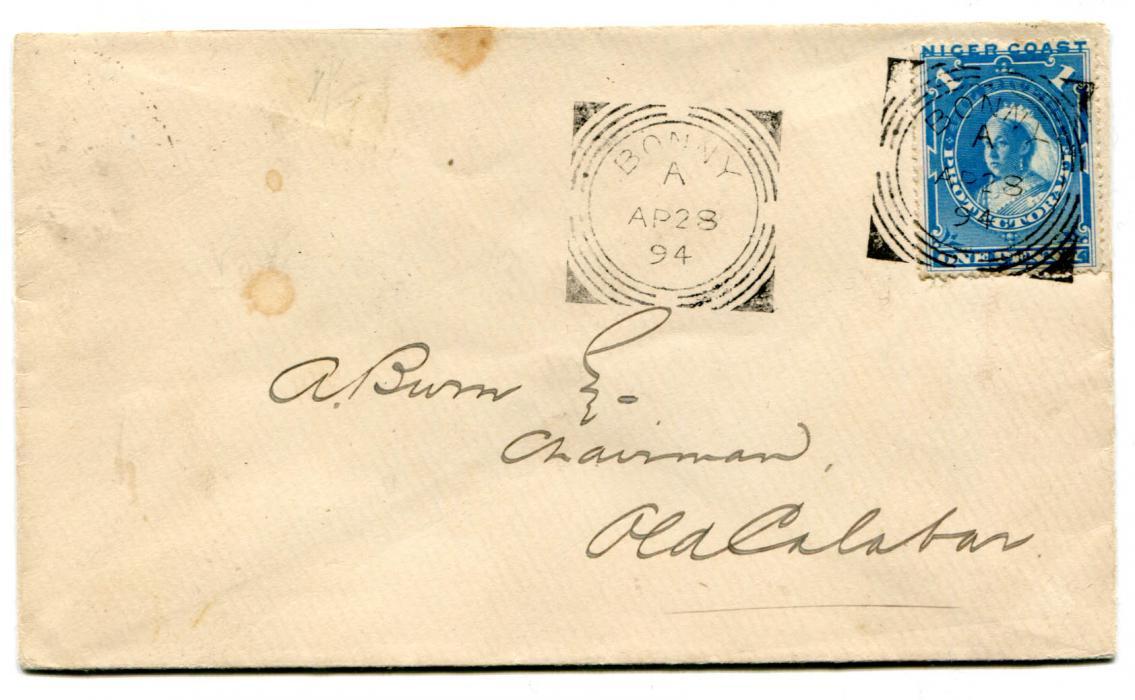 NIGER COAST
1 1
PROTECTORATE
ONE PENNY
BONNY
A
AP28
94
BONNY
A
AP28
94
A. Burn Esq.
Chairman,
Old Calabar.